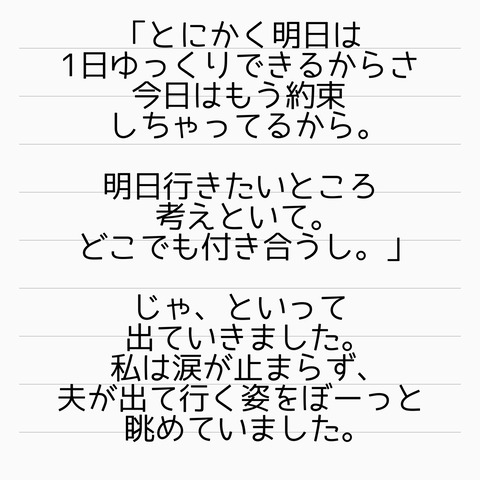 「とにかく明日は
1日ゆっくりできるからさ
今日はもう約束
しちゃってるから。
明日行きたいところ
考えといて。
どこでも付き合うし。」
じゃ、といって
出ていきました。
私は涙が止まらず、
夫が出て行く姿をぼーっと
眺めていました。